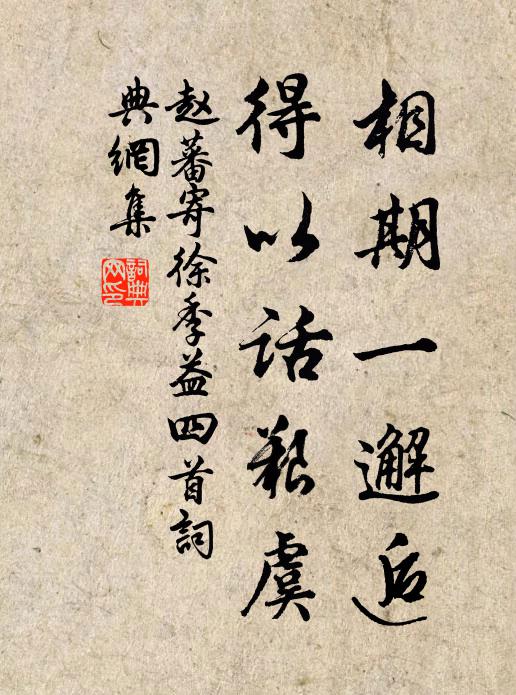 相期一邂逅
得以话艰虞
赵蕃寄徐季益四首詞
典網集
詞典網印